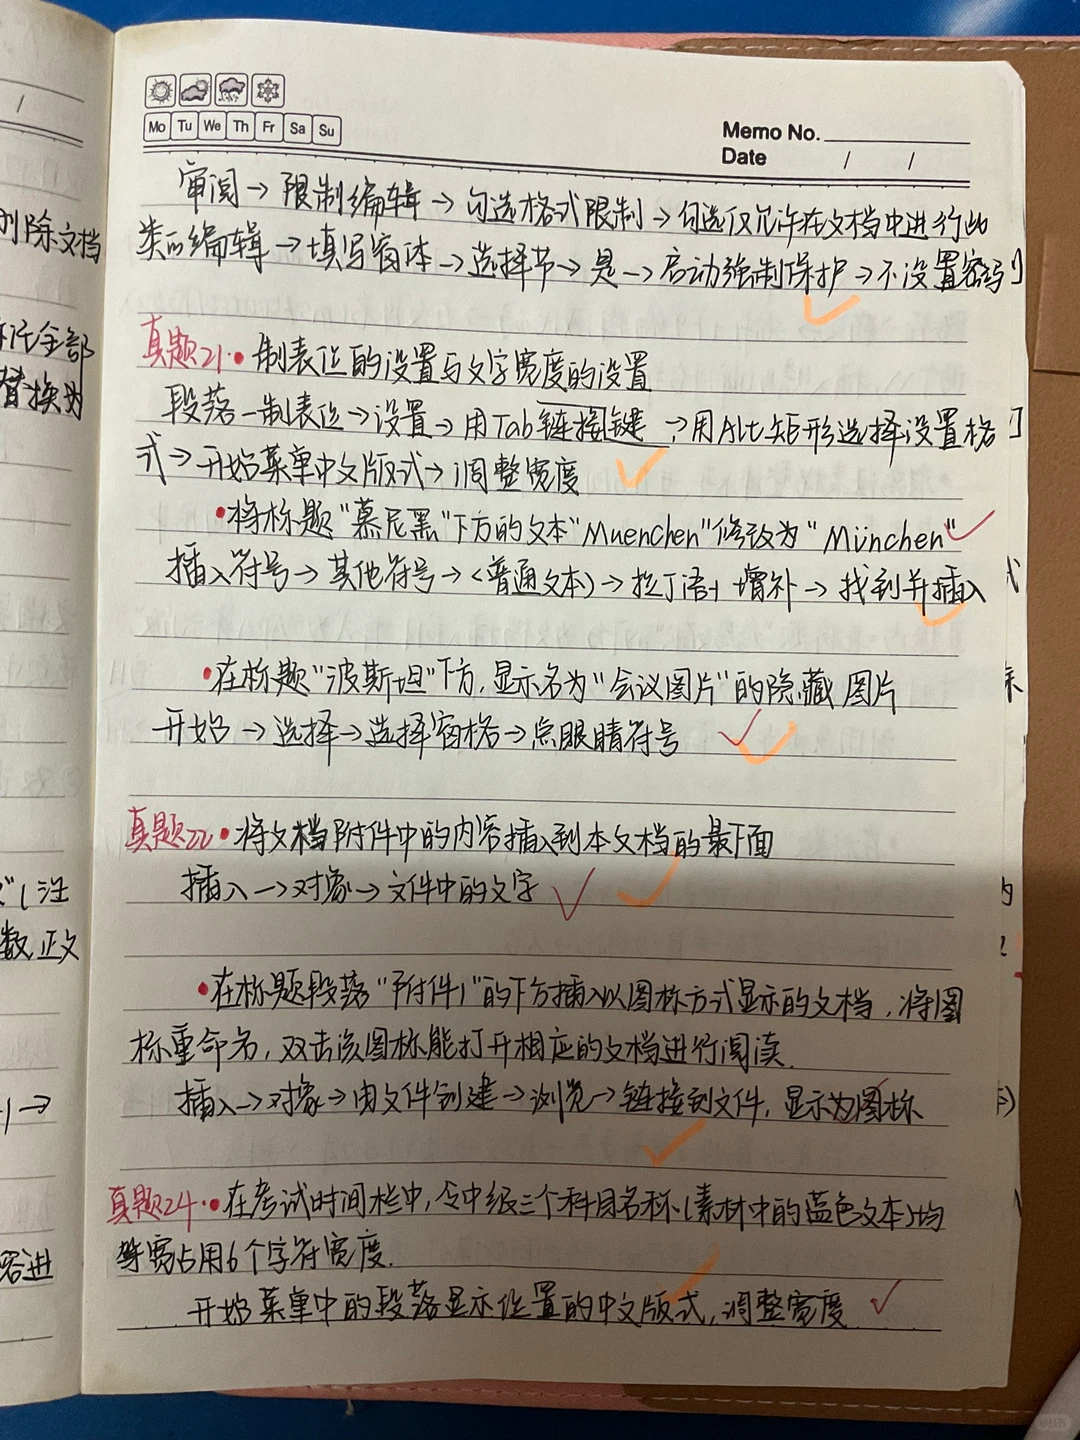 Mo Tu We Th Fr Sa Su
Memo No.
Date / /
审阅→限制编辑→勾选格式限制→勾选仅允许在文档中进行此
类的编辑→填写窗体→选择节→是→启动强制保护→不设置密码
真题21·制表位的设置与文字宽度的设置
段落-制表位→设置→用Tab链接键→用Alt矩形选择设置格
式→开始菜单中文版式→调整宽度
·将标题"慕尼黑"下方的文本"Muenchen"修改为"München"
插入符号→其他符号→(普通文本)→拉丁语1增补→找到并插入
·在标题"波斯坦"下方,显示名为"会议图片"的隐藏图片
开始→选择→选择窗格→点眼睛符号
真题22·将文档附件中的内容插入到本文档的最下面
插入→对象→文件中的文字
·在标题段落"附件1"的下方插入以图标方式显示的文档,将图
标重命名,双击该图标能打开相应的文档进行阅读.
插入→对象→由文件创建→浏览→链接到文件,显示为图标
真题24·在考试时间栏中,令中级三个科目名称(素材中的蓝色文本)均
等宽占用6个字符宽度.
开始菜单中的段落显示位置的中文版式,调整宽度
删除文档
全部
替换为
注
数,正文
1→